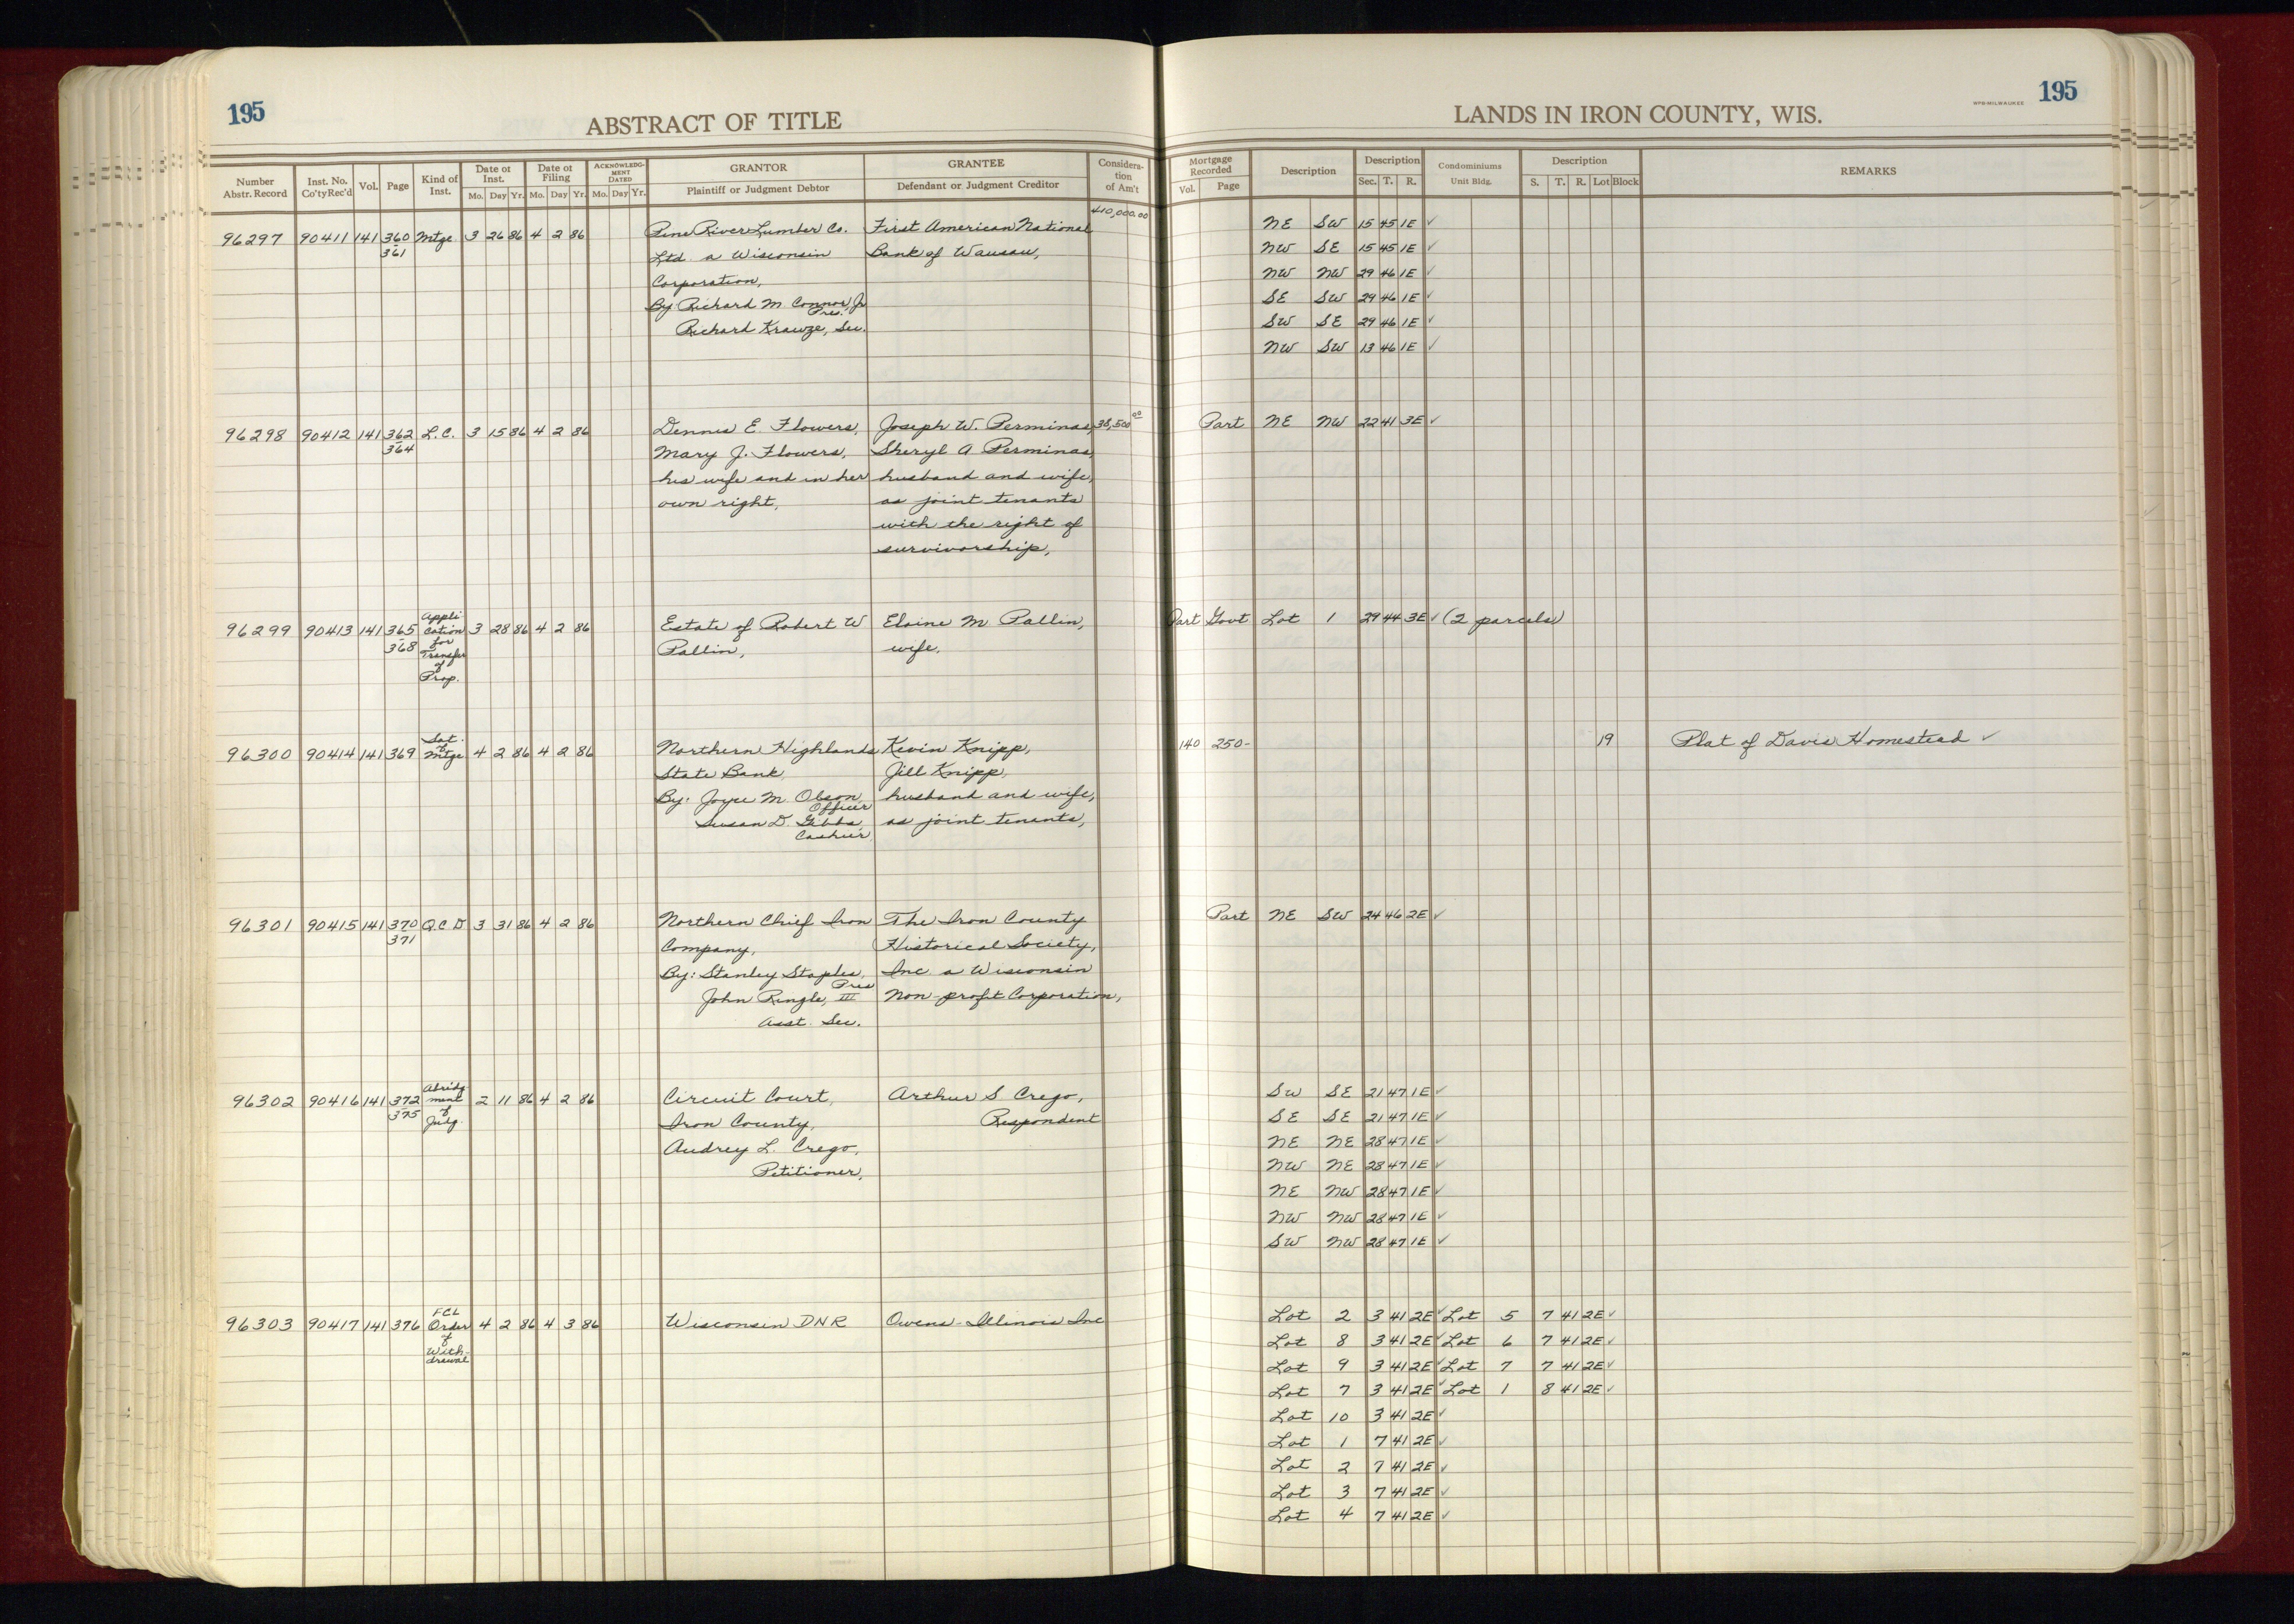 195
ABSTRACT OF TITLE
LANDS IN IRON COUNTY, WIS.
WPB-MILWAUKEE
195
Number Abstr. Record | Inst. No. Co'ty Rec'd | Vol. | Page | Kind of Inst. | Date of Inst. Mo. Day Yr. | Date of Filing Mo. Day Yr. | ACKNOWLEDGMENT DATED Mo. Day Yr. | GRANTOR Plaintiff or Judgment Debtor | GRANTEE Defendant or Judgment Creditor | Consideration of Am't | Mortgage Recorded Vol. Page | Description | Description Sec. T. R. | Condominiums Unit Bldg. | Description S. T. R. Lot Block | REMARKS
410,000.00
96297 90411 141 360 Mtge 3 26 86 4 2 86 Pine River Lumber Co. First American National NE SW 15 45 1E ✓
361 Ltd. a Wisconsin Bank of Wausau, NW SE 15 45 1E ✓
Corporation, NW NW 29 46 1E ✓
By: Richard M. Connor, Jr Pres. SE SW 29 46 1E ✓
Richard Krawze, Sec. SW SE 29 46 1E ✓
NW SW 13 46 1E ✓
96298 90412 141 362 L.C. 3 15 86 4 2 86 Dennis E. Flowers, Joseph W. Perminas, 38,500 00 Part NE NW 22 41 3E ✓
364 Mary J. Flowers, Sheryl A Perminas,
his wife and in her husband and wife,
own right, as joint tenants
with the right of
survivorship,
96299 90413 141 365 Application for Transfer of Prop. 3 28 86 4 2 86 Estate of Robert W Elaine M Pallin, Part Govt Lot 1 29 44 3E ✓ (2 parcels)
368 Pallin, wife,
96300 90414 141 369 Sat. of Mtge 4 2 86 4 2 86 Northern Highlands Kevin Knipp, 140 250- 19 Plat of Davis Homestead ✓
State Bank, Jill Knipp,
By: Joyce M. Olson, Officer husband and wife,
Susan D. Gibbs, Cashier, as joint tenants,
96301 90415 141 370 Q.C.D 3 31 86 4 2 86 Northern Chief Iron The Iron County Part NE SW 24 46 2E ✓
371 Company, Historical Society,
By: Stanley Staples, Pres Inc. a Wisconsin
John Ringle, III Non-profit Corporation,
Asst. Sec.
96302 90416 141 372 Abridgment of Judg. 2 11 86 4 2 86 Circuit Court, Arthur S Crego, SW SE 21 47 1E ✓
375 Iron County, Respondent SE SE 21 47 1E ✓
Audrey L. Crego, NE NE 28 47 1E ✓
Petitioner, NW NE 28 47 1E ✓
NE NW 28 47 1E ✓
NW NW 28 47 1E ✓
SW NW 28 47 1E ✓
96303 90417 141 376 FCL Order of With-drawal 4 2 86 4 3 86 Wisconsin DNR Owens-Illinois Inc Lot 2 3 41 2E ✓ Lot 5 7 41 2E ✓
Lot 8 3 41 2E ✓ Lot 6 7 41 2E ✓
Lot 9 3 41 2E ✓ Lot 7 7 41 2E ✓
Lot 7 3 41 2E ✓ Lot 1 8 41 2E ✓
Lot 10 3 41 2E ✓
Lot 1 7 41 2E ✓
Lot 2 7 41 2E ✓
Lot 3 7 41 2E ✓
Lot 4 7 41 2E ✓